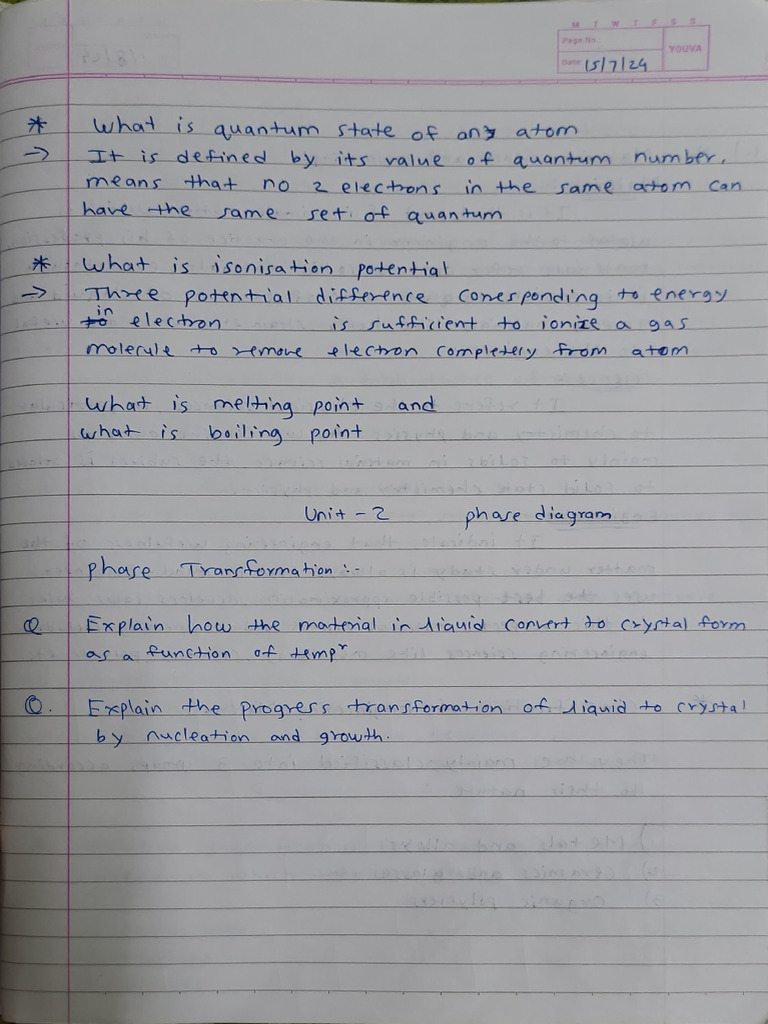 M T W T F S S
Page No.:
YOUVA
Date: 15/7/24
* What is quantum state of any atom
→ It is defined by its value of quantum number,
means that no 2 electrons in the same atom can
have the same set of quantum
* What is isonisation potential
→ Three potential difference corresponding to energy
in electron is sufficient to ionize a gas
molecule to remove electron completely from atom
What is melting point and
what is boiling point
Unit - 2 phase diagram
phase Transformation :-
Q Explain how the material in liquid convert to crystal form
as a function of tempr
Q. Explain the progress transformation of liquid to crystal
by nucleation and growth.